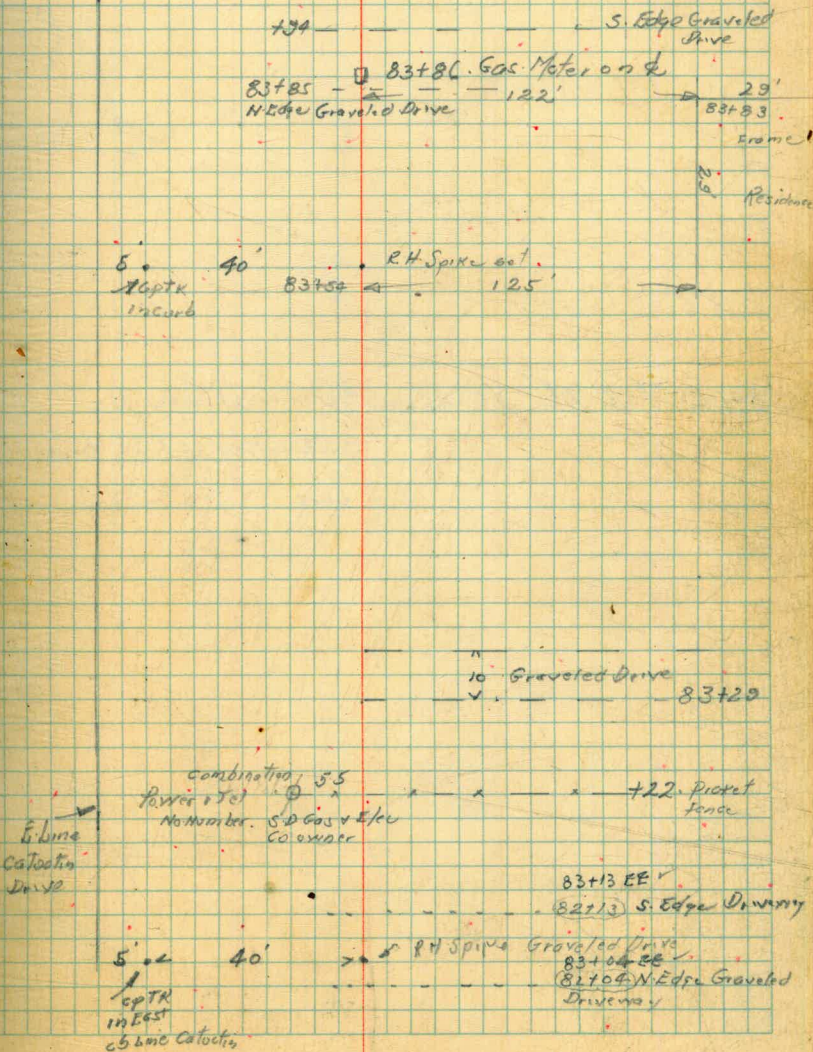 +94 S. Edge Graveled
Drive
83+86. Gas Meter on ℄
83+85 122' 29'
N. Edge Graveled Drive 83+83
Frame
29'
Residence
5' 40' R.H. Spike set.
CpTK 83+54 125'
in curb
10 Graveled Drive
83+29
Combination 5.5
Power & Tel +22. Picket
No Number. S.D Gas & Elec fence
Co owner
E. Line
Catoctin
Drive
83+13 EE ✓
82+13 S. Edge Driveway
5' 40' RH Spike Graveled Drive
83+04 EE ✓
82+04 N. Edge Graveled
Driveway
CpTK
in East
cb Line Catoctin